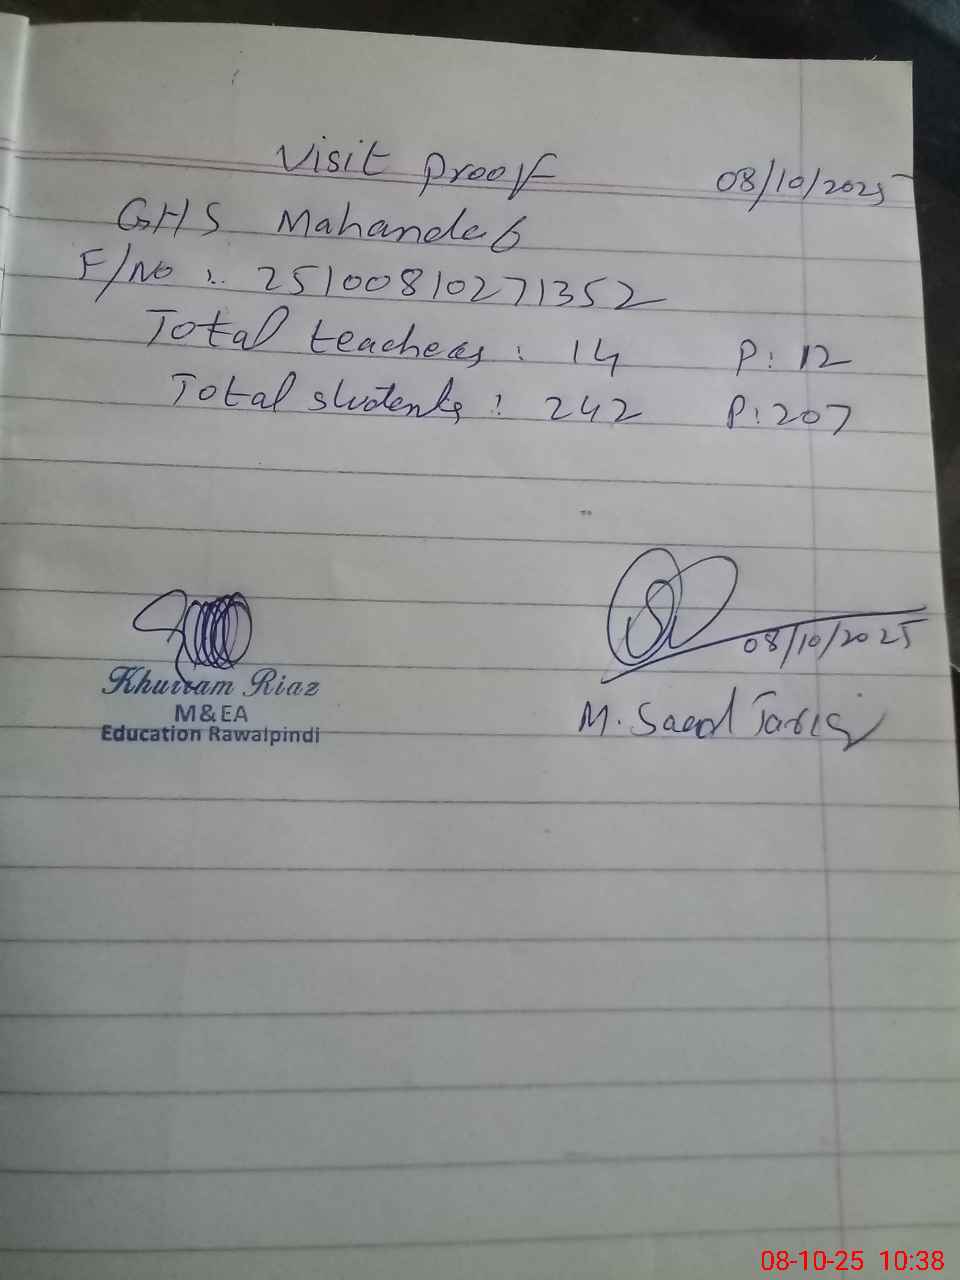 Visit Proof 08/10/2025
GHS Mahandeb
F/No : 25100810271352
Total teachers : 14 P: 12
Total students : 242 P: 207
08/10/2025
Khurram Riaz
M&EA
Education Rawalpindi
M. Saad Tariq
08-10-25 10:38